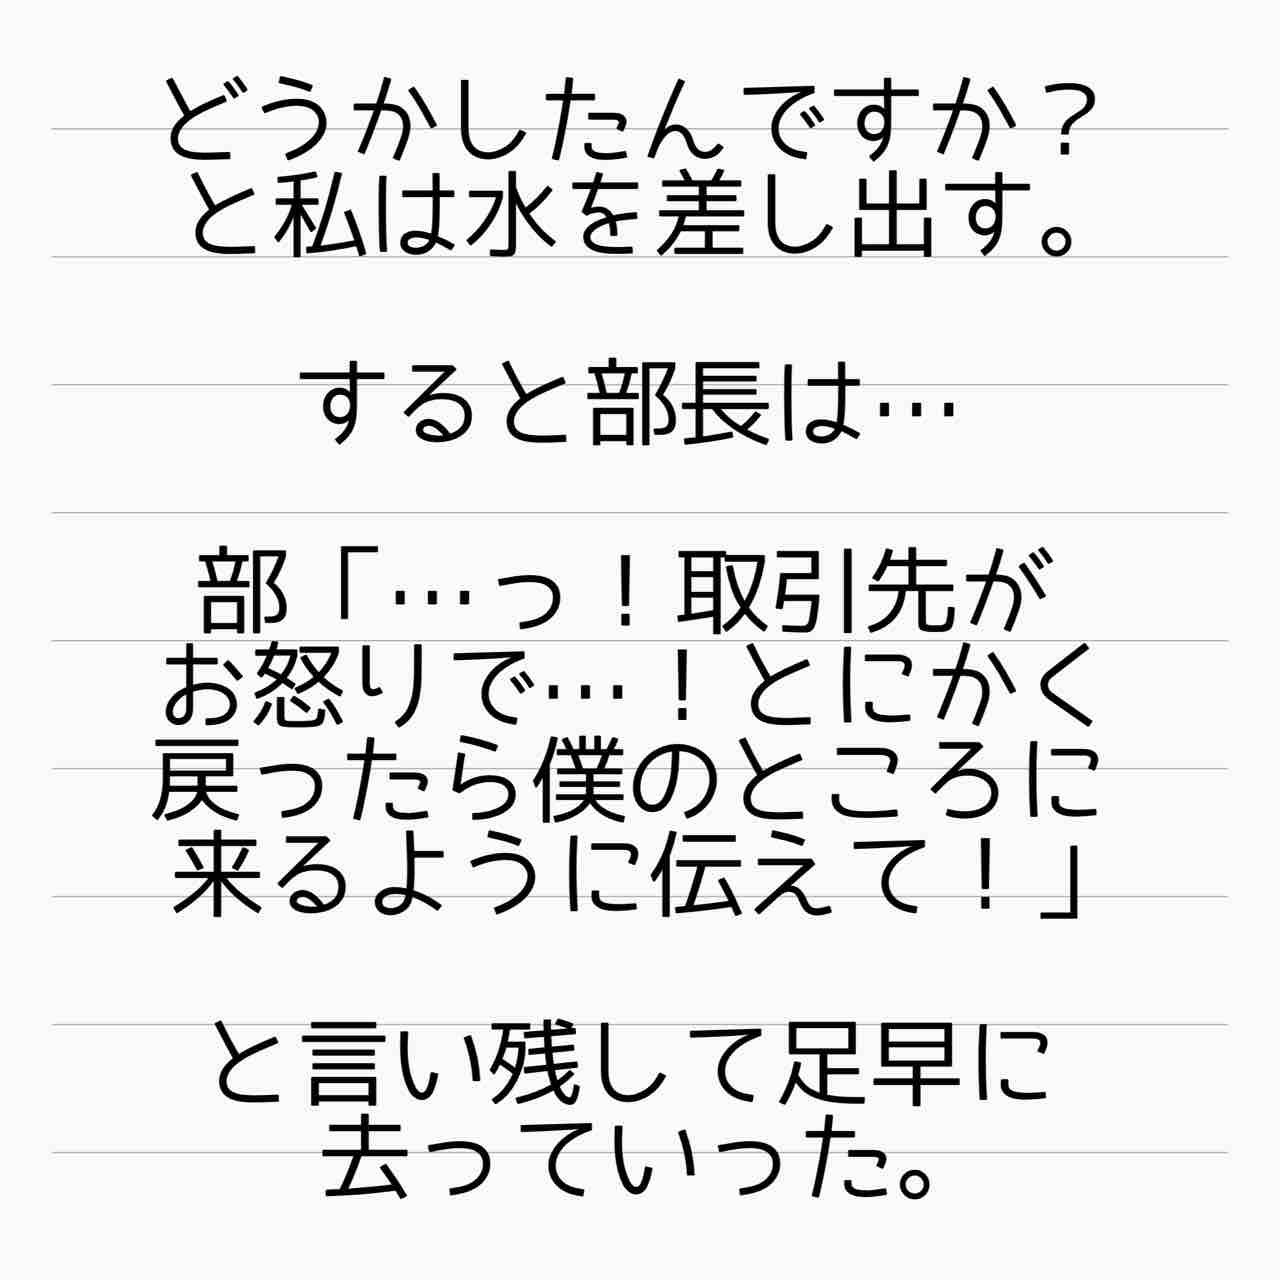 どうかしたんですか？
と私は水を差し出す。
すると部長は…
部「…っ！取引先が
お怒りで…！とにかく
戻ったら僕のところに
来るように伝えて！」
と言い残して足早に
去っていった。